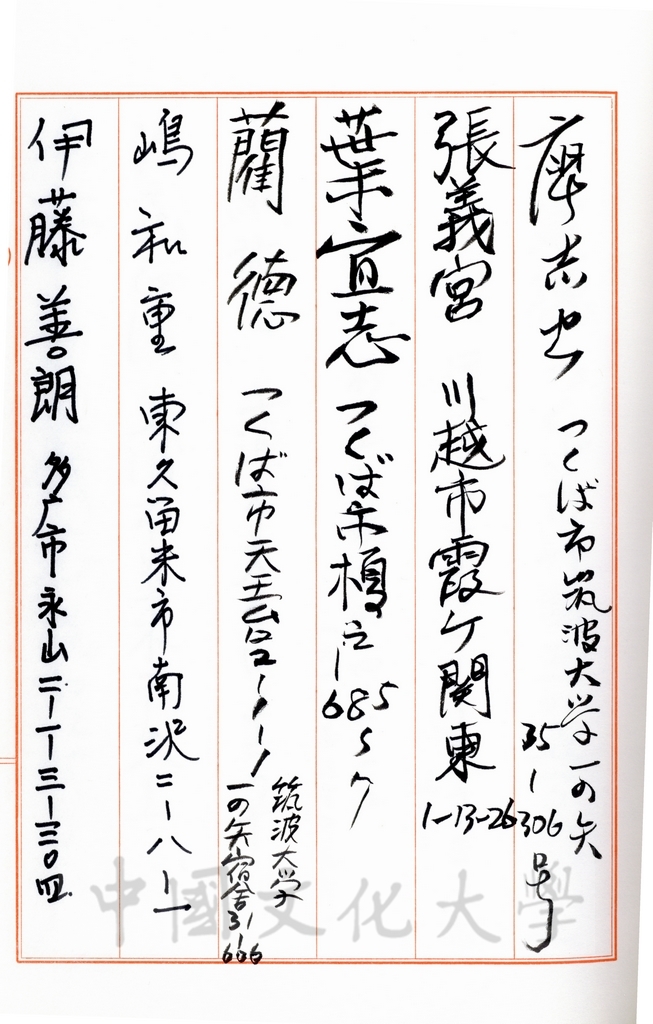 廖志忠 つくば市筑波大学一の矢35-306号
張義宮 川越市霞ケ関東1-13-26
葉宜志 つくば市榎戸685-7
藺德 つくば市天王台1-1-1
筑波大学
一の矢宿舎31-606
嶋和重 東久留米市南沢二-八-一
伊藤善朗 多戸市永山二-一-三-三〇四
中國文化大學